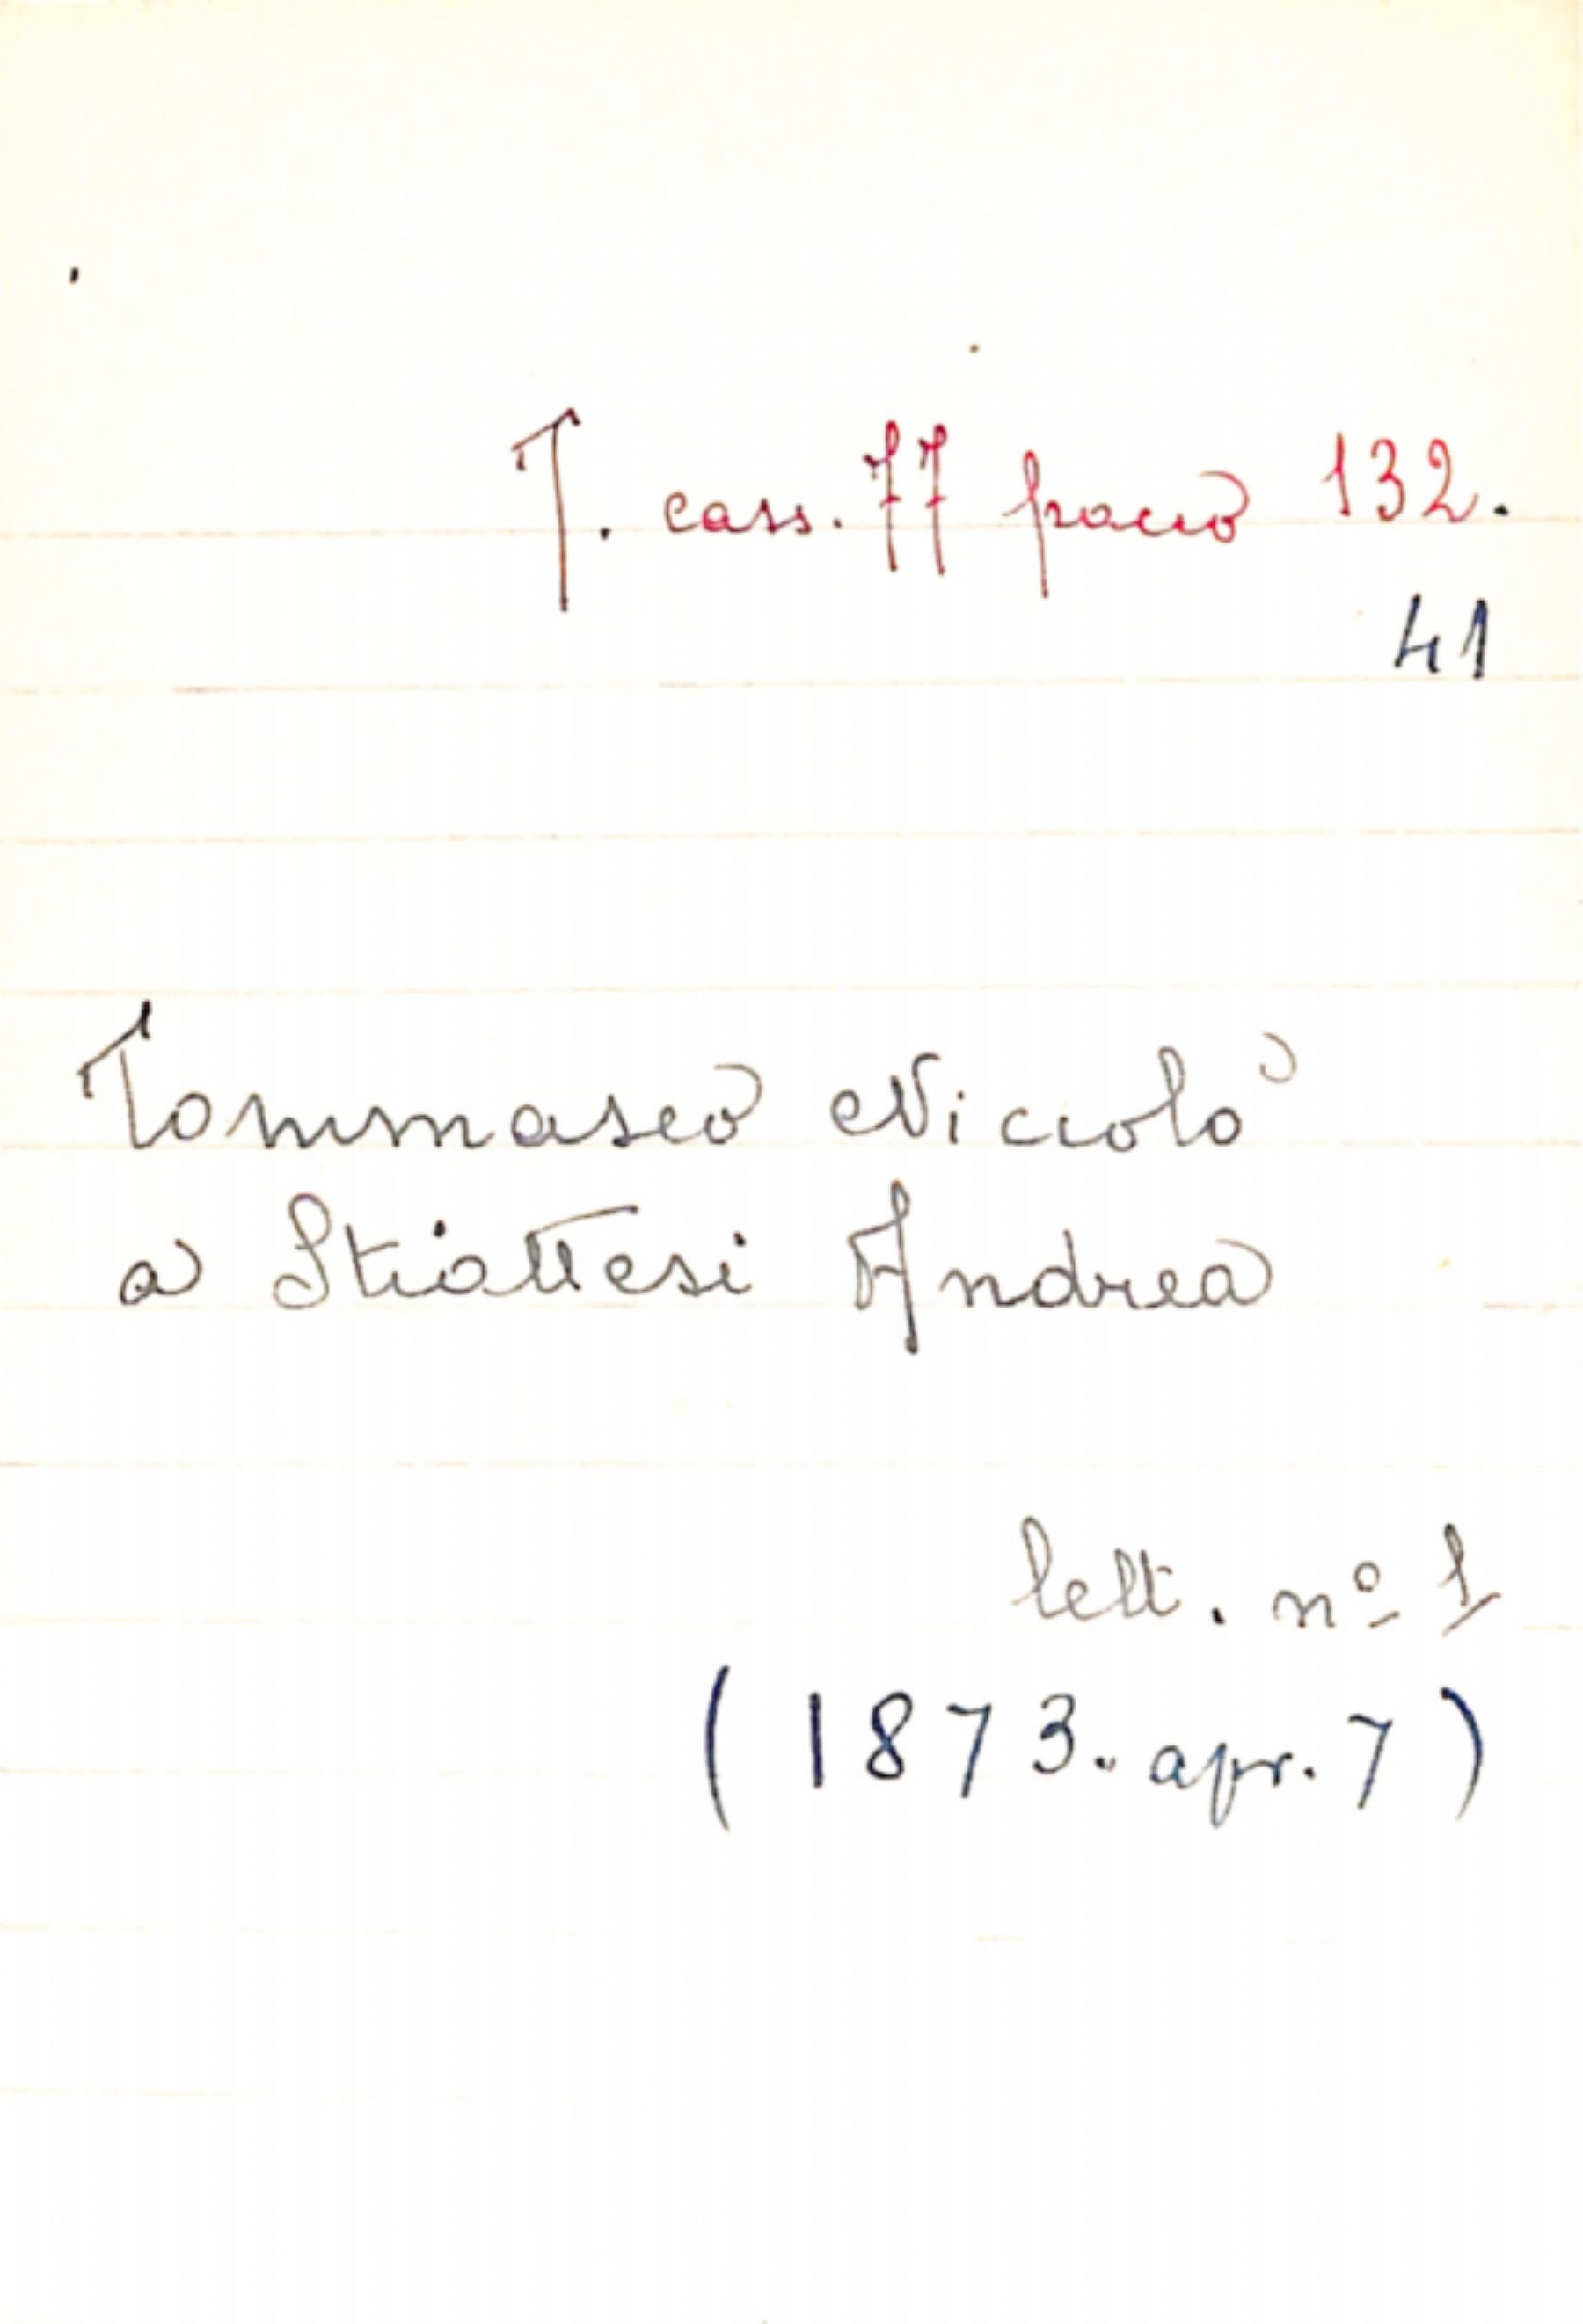 T. cass. 77 pacco 132.
41
Tommaseo Niccolò
a Stiattesi Andrea
lett. nº 1
(1873. apr. 7)